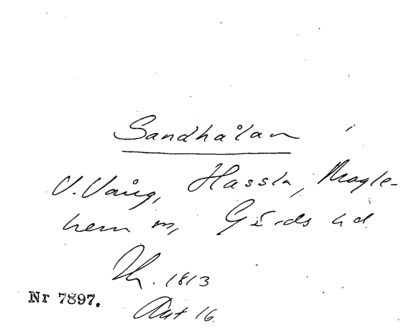 Sandhålan
V. Vång, Hassla, Magle-
hem sn, Gärds hd
Th. 1813
Nr 7897.
Akt 16